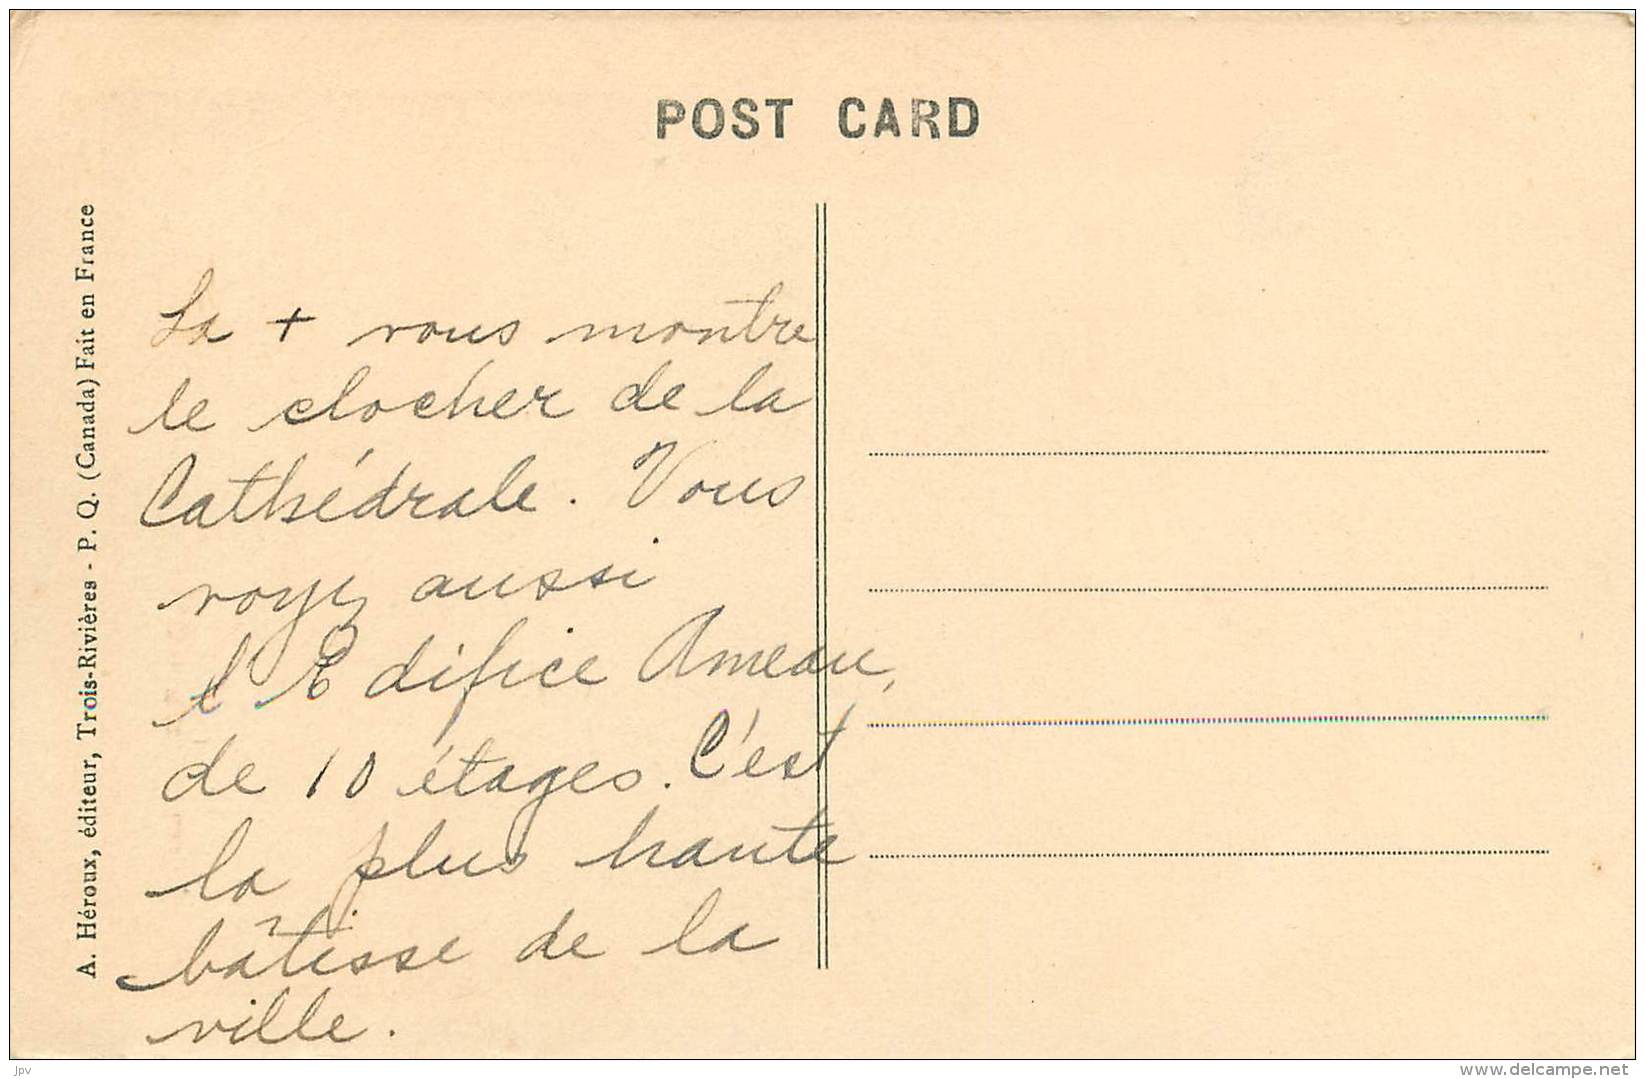 POST CARD
A. Héroux, éditeur, Trois-Rivières - P. Q. (Canada) Fait en France
La + vous montre
le clocher de la
Cathédrale. Vous
voyez aussi
l'Edifice Ameau,
de 10 étages. C'est
la plus haute
bâtisse de la
ville.
jpv
delcampe.net